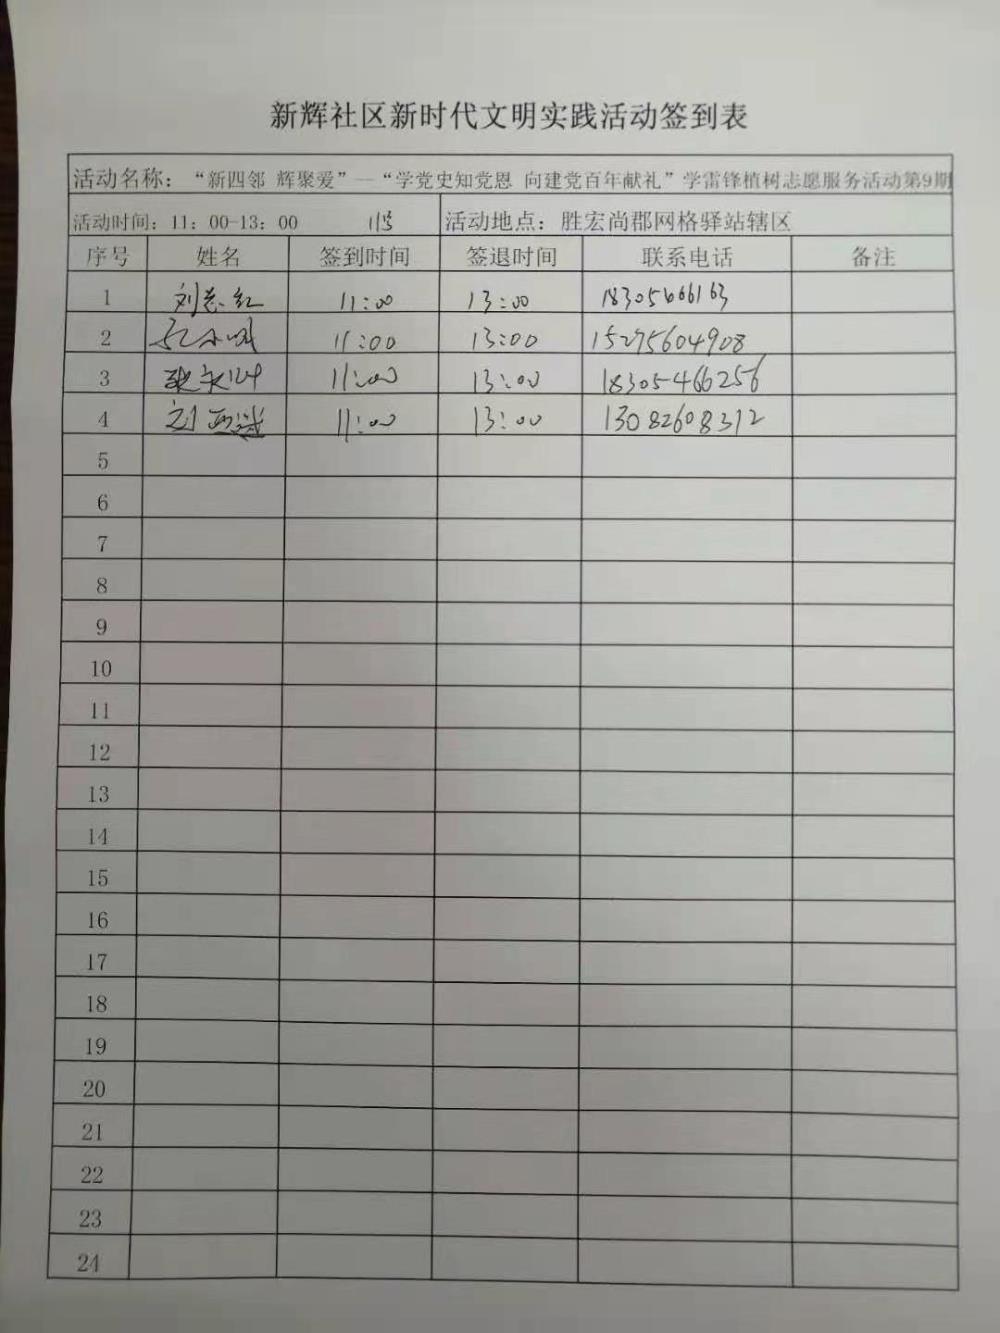 新辉社区新时代文明实践活动签到表
活动名称：“新四邻 辉聚爱”—“学党史知党恩 向建党百年献礼”学雷锋植树志愿服务活动第9期
活动时间：11：00-13：00 活动地点：胜宏尚郡网格驿站辖区
序号 姓名 签到时间 签退时间 联系电话 备注
1 刘志红 11:00 13:00 18305666163
2 11:00 13:00 15275604908
3 11:00 13:00 18305466256
4 刘 11:00 13:00 13082608312
5
6
7
8
9
10
11
12
13
14
15
16
17
18
19
20
21
22
23
24